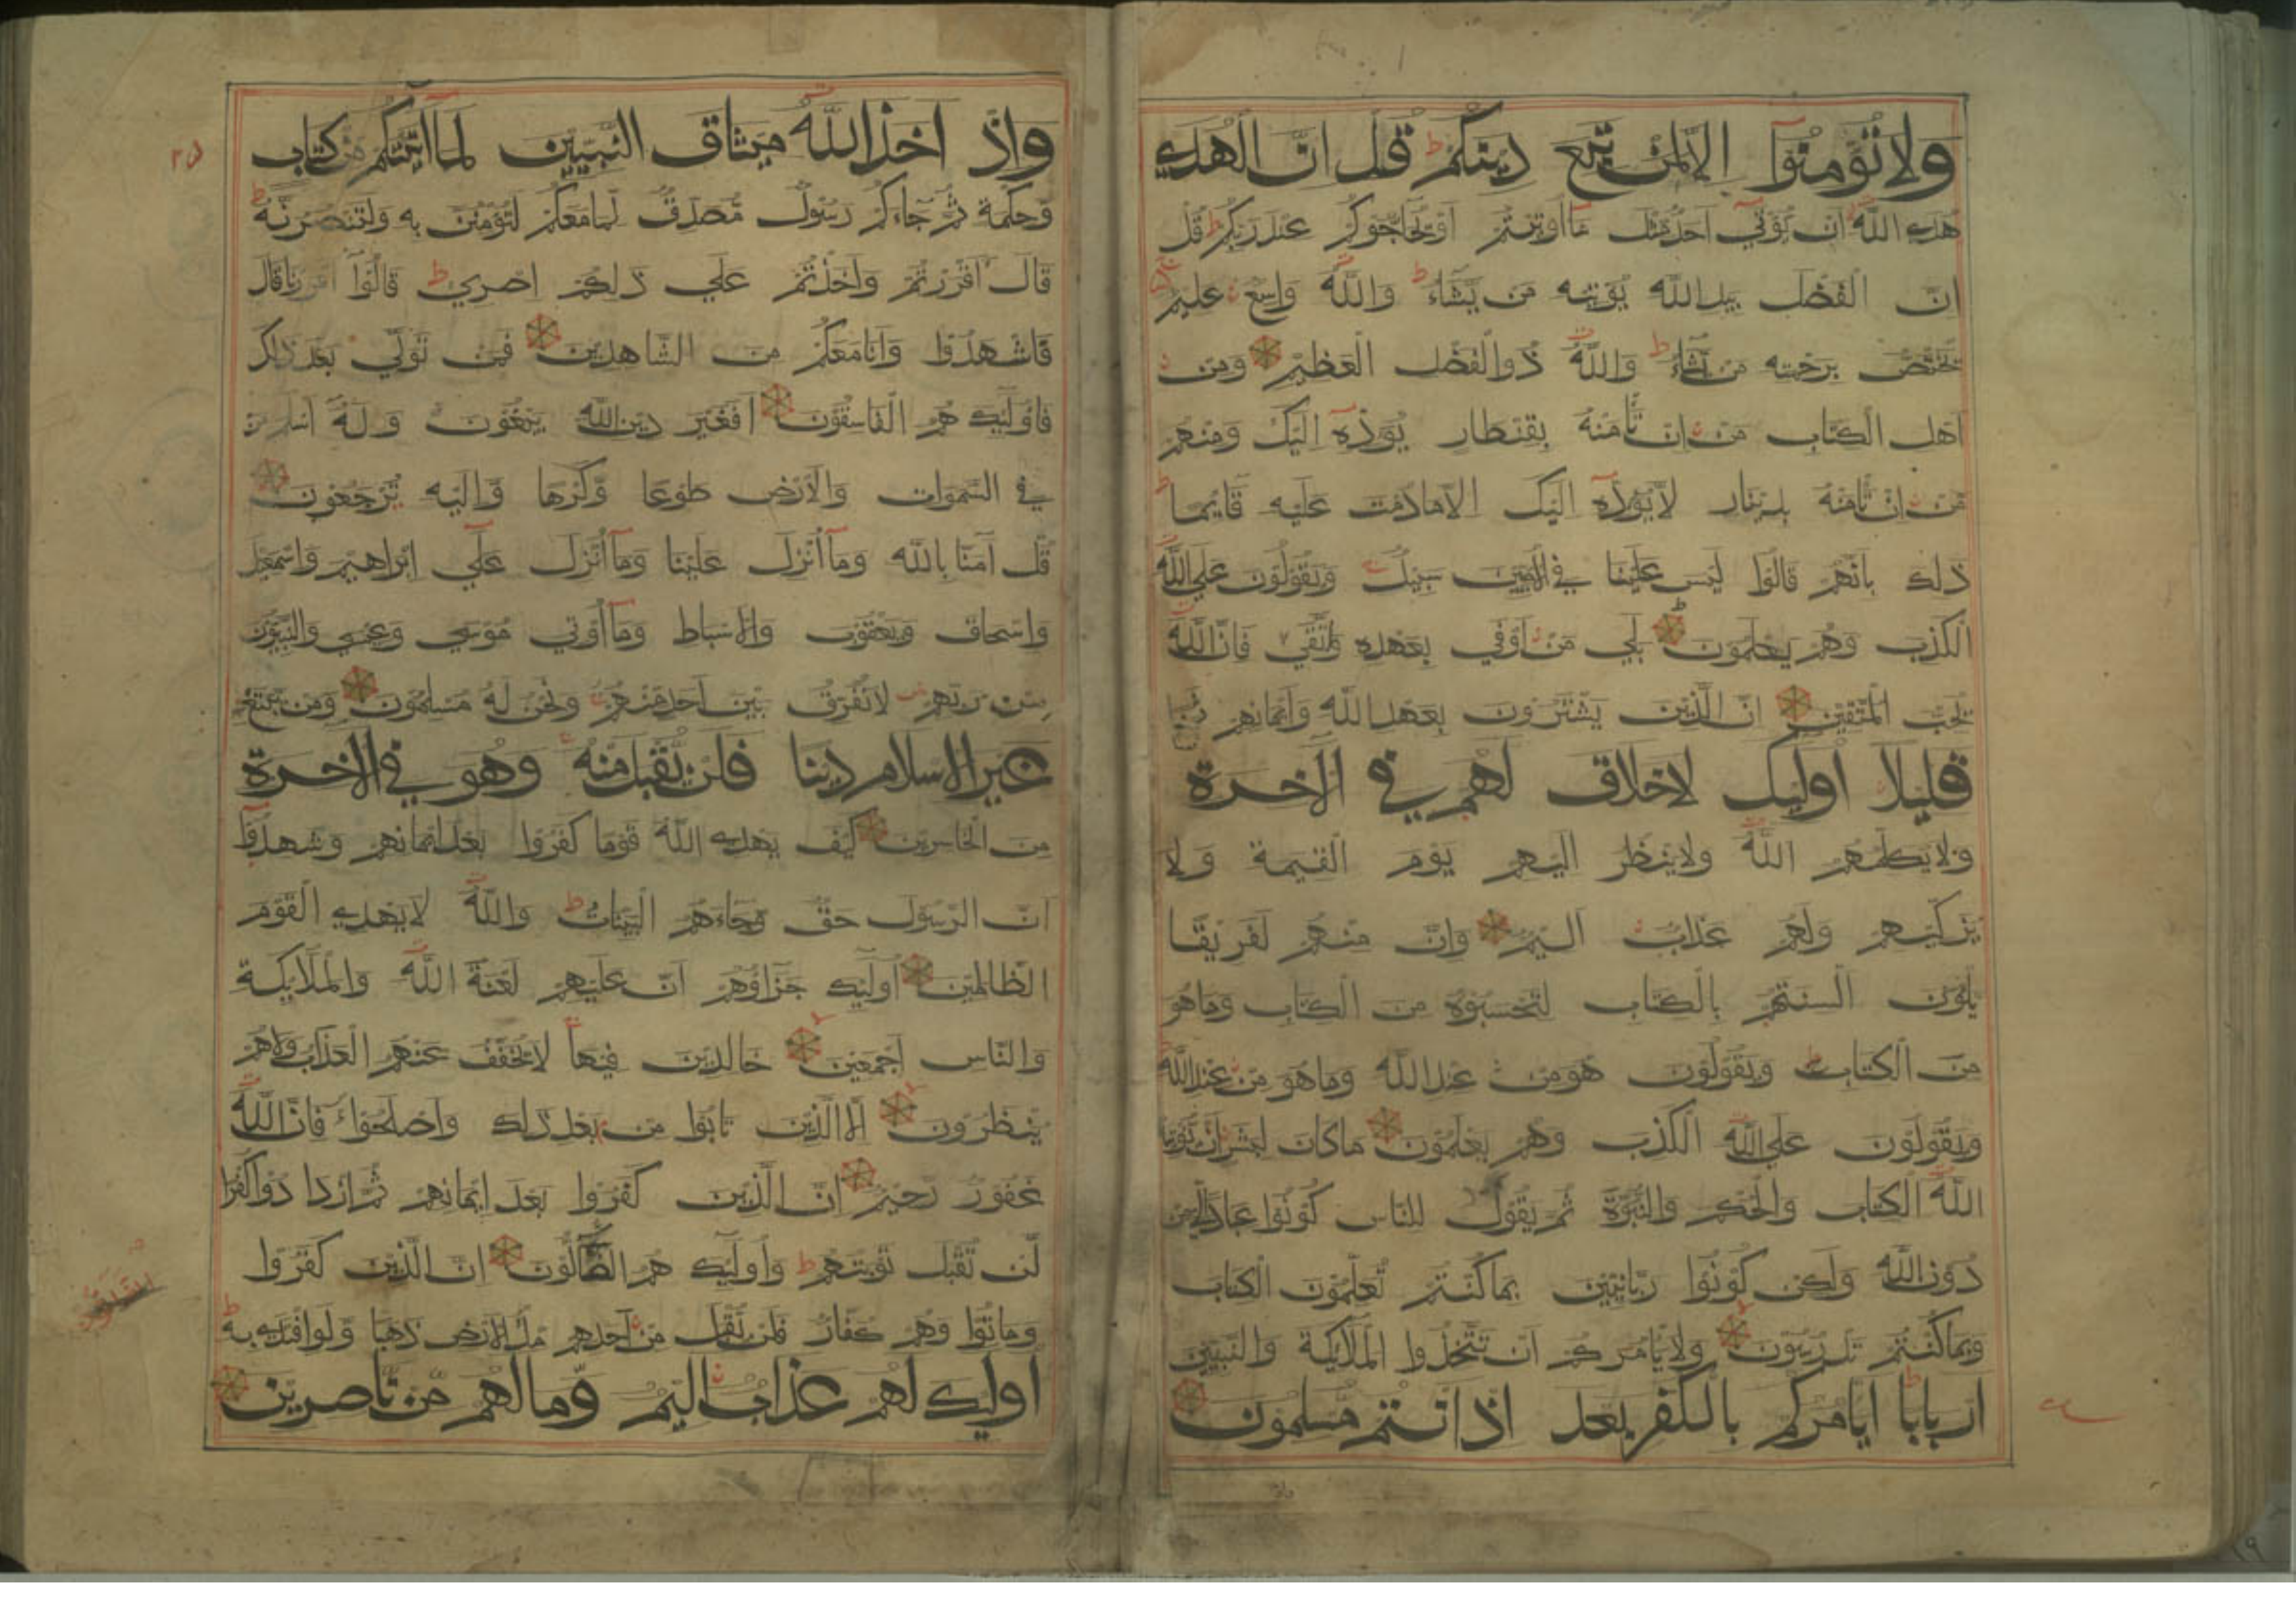 ولا تؤمنوا الا لمن تبع دينكم ط قل ان الهدي
هدي الله ان يؤتي احد مثل ما اوتيتم او يحاجوكم عند ربكم ط قل
ان الفضل بيد الله يؤتيه من يشاء ط والله واسع عليم
يختص برحمته من يشاء ط والله ذو الفضل العظيم ومن
اهل الكتاب من ان تأمنه بقنطار يؤده اليك ومنهم
من ان تأمنه بدينار لا يؤده اليك الا ما دمت عليه قايما
ذلك بانهم قالوا ليس علينا في الاميين سبيل ويقولون علي الله
الكذب وهم يعلمون بلي من اوفي بعهده واتقي فان الله
يحب المتقين ان الذين يشترون بعهد الله وايمانهم ثمنا
قليلا اوليك لا خلاق لهم في الآخرة
ولا يكلمهم الله ولا ينظر اليهم يوم القيمة ولا
يزكيهم ولهم عذاب اليم وان منهم لفريقا
يلون السنتهم بالكتاب لتحسبوه من الكتاب وما هو
من الكتاب ويقولون هو من عند الله وما هو من عند الله
ويقولون علي الله الكذب وهم يعلمون ما كان لبشر ان يؤتيه
الله الكتاب والحكم والنبوة ثم يقول للناس كونوا عبادا لي من
دون الله ولكن كونوا ربانيين بما كنتم تعلمون الكتاب
وبما كنتم تدرسون ولا يأمركم ان تتخذوا الملايكة والنبيين
اربابا ايامركم بالكفر بعد اذ انتم مسلمون
واذ اخذ الله ميثاق النبيين لما اتيتكم من كتاب
وحكمة ثم جاءكم رسول مصدق لما معكم لتؤمنن به ولتنصرنه ط
قال اقررتم واخذتم علي ذلكم اصري ط قالوا اقررنا قال
فاشهدوا وانا معكم من الشاهدين فمن تولي بعد ذلك
فاوليك هم الفاسقون افغير دين الله يبغون وله اسلم من
في السموات والارض طوعا وكرها واليه ترجعون
قل آمنا بالله وما انزل علينا وما انزل علي ابراهيم واسمعيل
واسحاق ويعقوب والاسباط وما اوتي موسي وعيسي والنبيون
من ربهم لا نفرق بين احد منهم ونحن له مسلمون ومن يبتغ
غير الاسلام دينا فلن يقبل منه وهو في الاخرة
من الخاسرين كيف يهدي الله قوما كفروا بعد ايمانهم وشهدوا
ان الرسول حق وجاءهم البينات ط والله لا يهدي القوم
الظالمين اوليك جزاؤهم ان عليهم لعنة الله والملايكة
والناس اجمعين خالدين فيها لا يخفف عنهم العذاب ولا هم
ينظرون الا الذين تابوا من بعد ذلك واصلحوا فان الله
غفور رحيم ان الذين كفروا بعد ايمانهم ثم ازدادوا كفرا
لن تقبل توبتهم ط واوليك هم الضالون ان الذين كفروا
وماتوا وهم كفار فلن يقبل من احدهم ملء الارض ذهبا ولو افتدي به ط
اوليك لهم عذاب اليم وما لهم من ناصرين